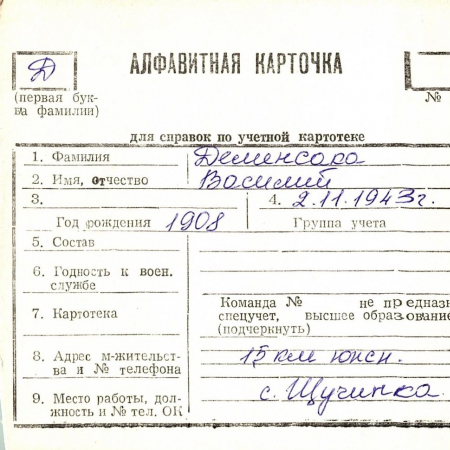 Д
АЛФАВИТНАЯ КАРТОЧКА
(первая бук-
ва фамилии)
№
для справок по учетной картотеке
1. Фамилия Деменсара
2. Имя, отчество Василий
3.
4. 2.11.1943г.
Год рождения 1908 Группа учета
5. Состав
6. Годность к воен.
службе
Команда № не предназ
7. Картотека спецучет, высшее образование
(подчеркнуть)
8. Адрес м-жительст-
ва и № телефона 15 км южн.
9. Место работы, дол-
жность и № тел. ОК с. Щучинка